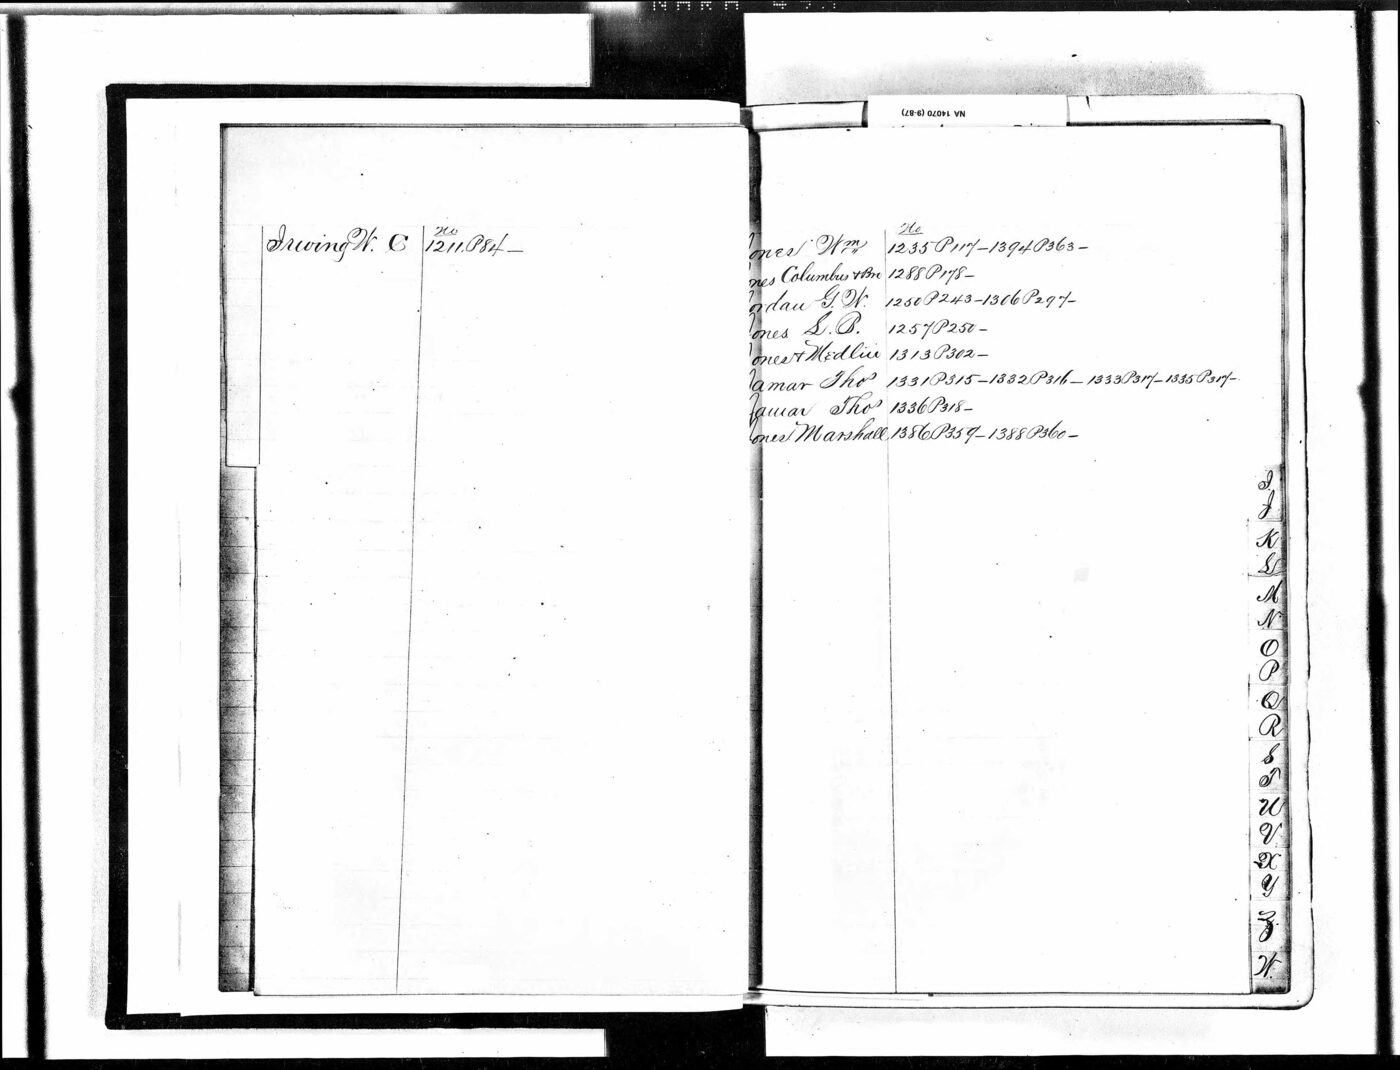 No
Irwing W. C 1211 P84 —
NA 14070 (9-87)
No
Jones Wm 1235 P117 — 1394 P363 —
Jones Columbus & Bro 1288 P178 —
Jordan G. W. 1250 P243 — 1306 P297 —
Jones L. B. 1257 P250 —
Jones & Medlin 1313 P302 —
Jamar Thos 1331 P315 — 1332 P316 — 1333 P317 — 1335 P317 —
Jamar Thos 1336 P318 —
Jones Marshall 1386 P359 — 1388 P360 —
I
J
K
L
M
N
O
P
Q
R
S
T
U
V
X
Y
Z
W